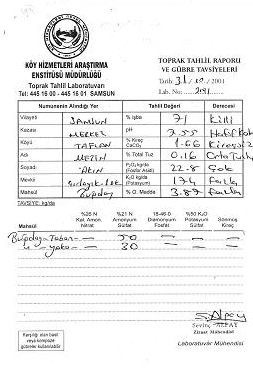 KÖY HİZMETLERİ ARAŞTIRMA
ENSTİTÜSÜ MÜDÜRLÜĞÜ
Toprak Tahlil Laboratuvarı
Tel: 445 16 00 - 445 16 01 SAMSUN
TOPRAK TAHLİL RAPORU
VE GÜBRE TAVSİYELERİ
Tarih: 31/10/2001
Lab. No:
Numunenin Alındığı Yer Tahlil Değeri Derecesi
Vilayeti SAMSUN % İşba 71 Killi
Kazası MERKEZ pH 7.55
Köyü TAFLAN % Kireç CaCO₃ 1.66 Kireçsiz
Adı METİN % Total Tuz 0.16
Soyadı AKIN P₂O₅ kg/da (Fosfor Asidi) 22.8 Çok
Mevkii K₂O kg/da (Potasyum) 174 Fazla
Mahsül Buğday % O. Madde 3.87 Fazla
TAVSİYE: kg/da
Mahsül %26 N Kal. Amon. Nitrat %21 N Amonyum Sülfat 18-46-0 Diamonyum Fosfat %50 K₂O Potasyum Sülfat Sönmüş Kireç
Buğday-Taban — 50 — — —
" - yaka — 30 — — —
Karşılığı olan basit
veya kompoze
gübreler kullanılabilir
Sevinç ALPAY
Ziraat Mühendisi
Laboratuvar Mühendisi